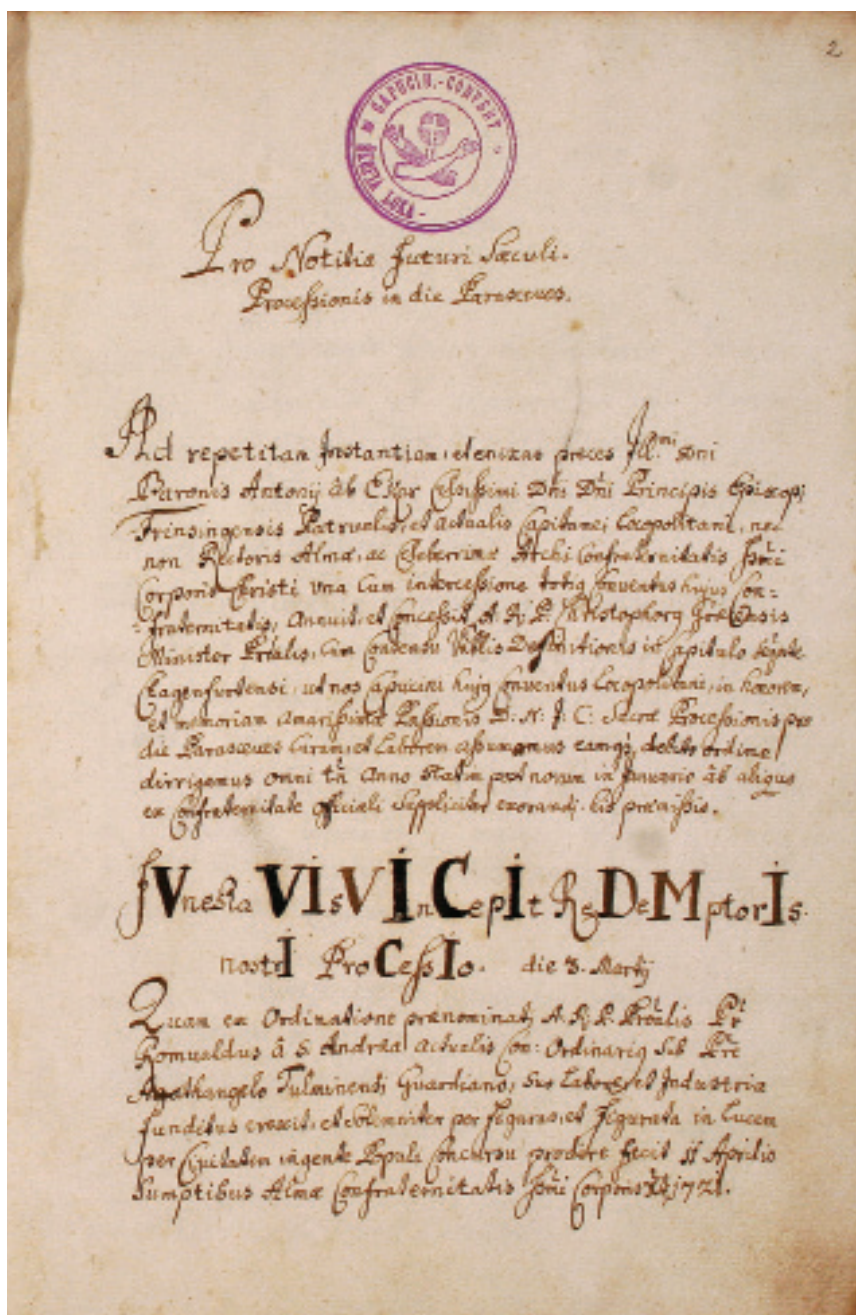 2
CAPUCIN.-CONVENT
LOKA
Pro Notitia futuri Sæculi.
Processionis in die Parasceves.
Ad repetitam Instantiam, et enixas preces Ill:mi Dni
Baronis Antonij ab Celsissimi Dni Dni Principis Episcopi
Frinsingensis Patruelis, et actualis Capitanei Locopolitani, nec
non Rectoris Almæ, ac Celeberrimæ Archi Confraternitatis Ssmi
Corporis Christi una cum intercessione totiq Conventus hujus Con=
=fraternitatis, Annuit, et Concessit A. R. P. Christophorq
Minister Prålis, cum Consensu Vblis Definitionis in Capitulo
Clagenfurtensi, ut nos Capucini hujq Conventus Locopolitani, in honorem,
et memoriam amarissimæ Passionis D: N: J: C: Sacræ Processionis pro
die Parasceves Curam, et Laborem assumamus eamq3, debito ordine
dirrigamus omni tñ Anno statim post novum in Januario ab aliquo
ex Confraternitate Officiali Suppliciter exorandj. his præmissis.
fVnesta VIsVInCepIt ReDeMptorIs
nostrI ProCessIo. die 3. Martij
Quam ex Ordinatione prænominatj A. R. P. Prålis Pr
Romualdus â S. Andrea actualis Con: Ordinariq Sub Pre
Agathangelo Tulminensi Guardiano, suo Labore, et Industria
funditus erexit, et Solemniter per figuras, et figurata in Lucem
per Civitatem ingente Populi Concursu prodire fecit 11 Aprilis
Sumptibus Almæ Confraternitatis Ssmi Corporis Xti 1721.